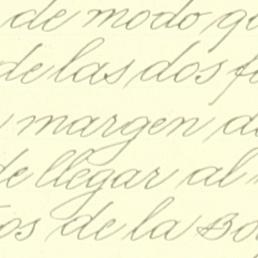 de modo qu
de las dos f
margen d
de llegar al
os de la Bo